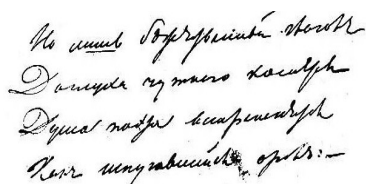 Но лишь божественный глаголъ
До слуха чуткаго коснется
Душа поэта встрепенется
Какъ пробудившійся орелъ:—